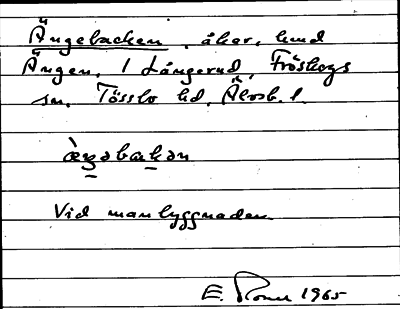 Ängebacken, åker, hmd
Ängen, 1 Långerud, Fröskogs
sn. Tössbo hd, Älvsb. l.
æ̀ŋəbakən
Vid manbyggnaden.
E. 1965